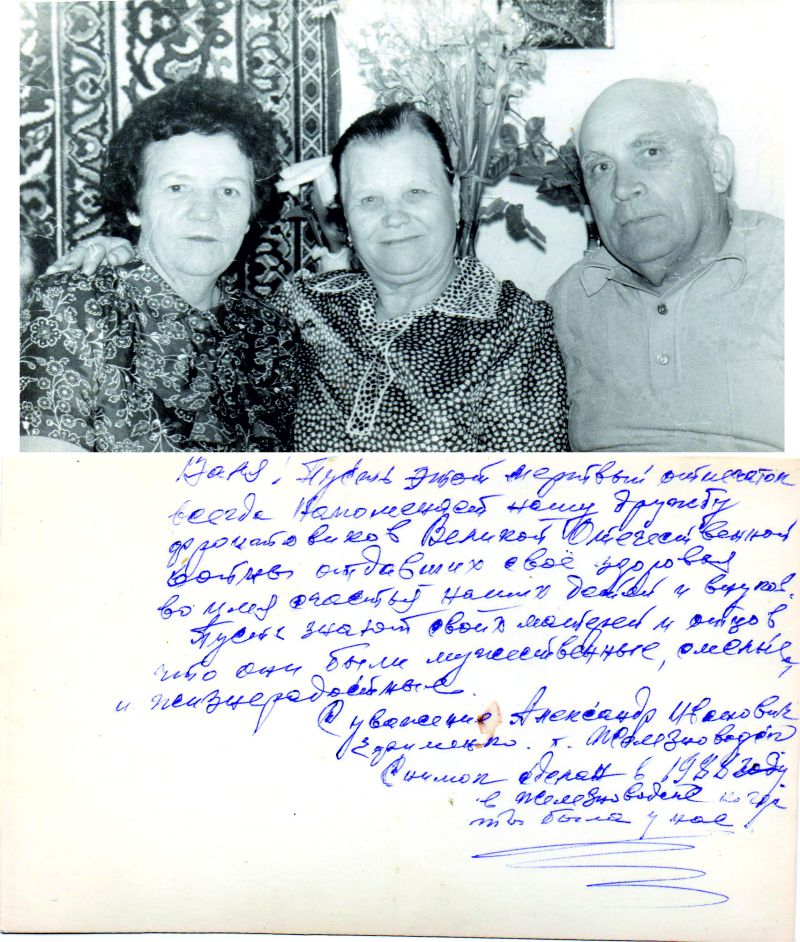 Ваня! Пусть этот мертвый отпечаток
всегда напоменает нашу дружбу
фронтовиков Великой Отечественной
войны отдавших своё здоровья
во имя счастья наших детей и внуков.
Пусть знают своих матерей и отцов
что они были мужественные, смелые,
и жизнерадостные.
С уважение Александр Иванович
г. Железноводск
Снимок сделан в 1988 году
в Железноводске когда
ты была у нас.